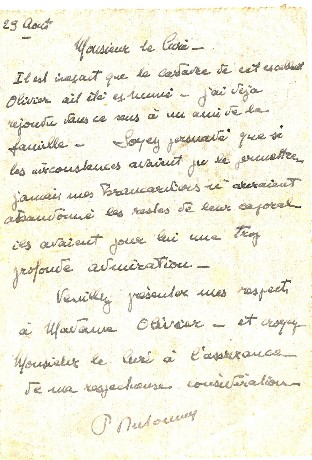 29 Août
Monsieur le Curé -
Il est inexact que le cadavre de cet excellent
Olivier ait été exhumé - j'ai déjà
répondu dans ce sens à un ami de la
famille - Soyez persuadé que si
les circonstances avaient pu le permettre
jamais mes Brancardiers n'auraient
abandonné les restes de leur caporal
ils avaient pour lui une trop
profonde admiration -
Veuillez présenter mes respects
à Madame Olivier - et croyez
Monsieur le Curé à l'assurance
de ma respectueuse considération -